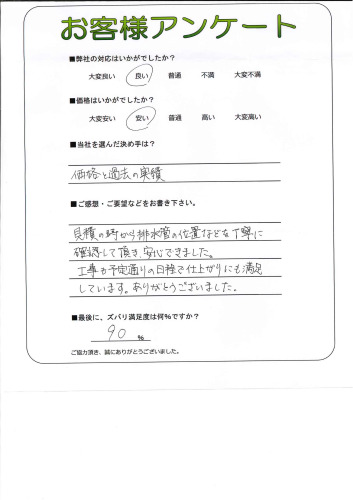 お客様アンケート
■弊社の対応はいかがでしたか?
大変良い 良い 普通 不満 大変不満
■価格はいかがでしたか?
大変安い 安い 普通 高い 大変高い
■当社を選んだ決め手は?
価格と過去の実績
■ご感想・ご要望などをお書き下さい。
見積の時から排水管の位置などを丁寧に
確認して頂き、安心できました。
工事も予定通りの日程で仕上がりにも満足
しています。ありがとうございました。
■最後に、ズバリ満足度は何%ですか?
90 %
ご協力頂き、誠にありがとうございました。